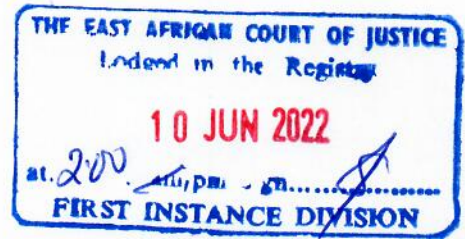 THE EAST AFRICAN COURT OF JUSTICE
Lodged in the Registry
10 JUN 2022
at. 2:00 am, pm
FIRST INSTANCE DIVISION